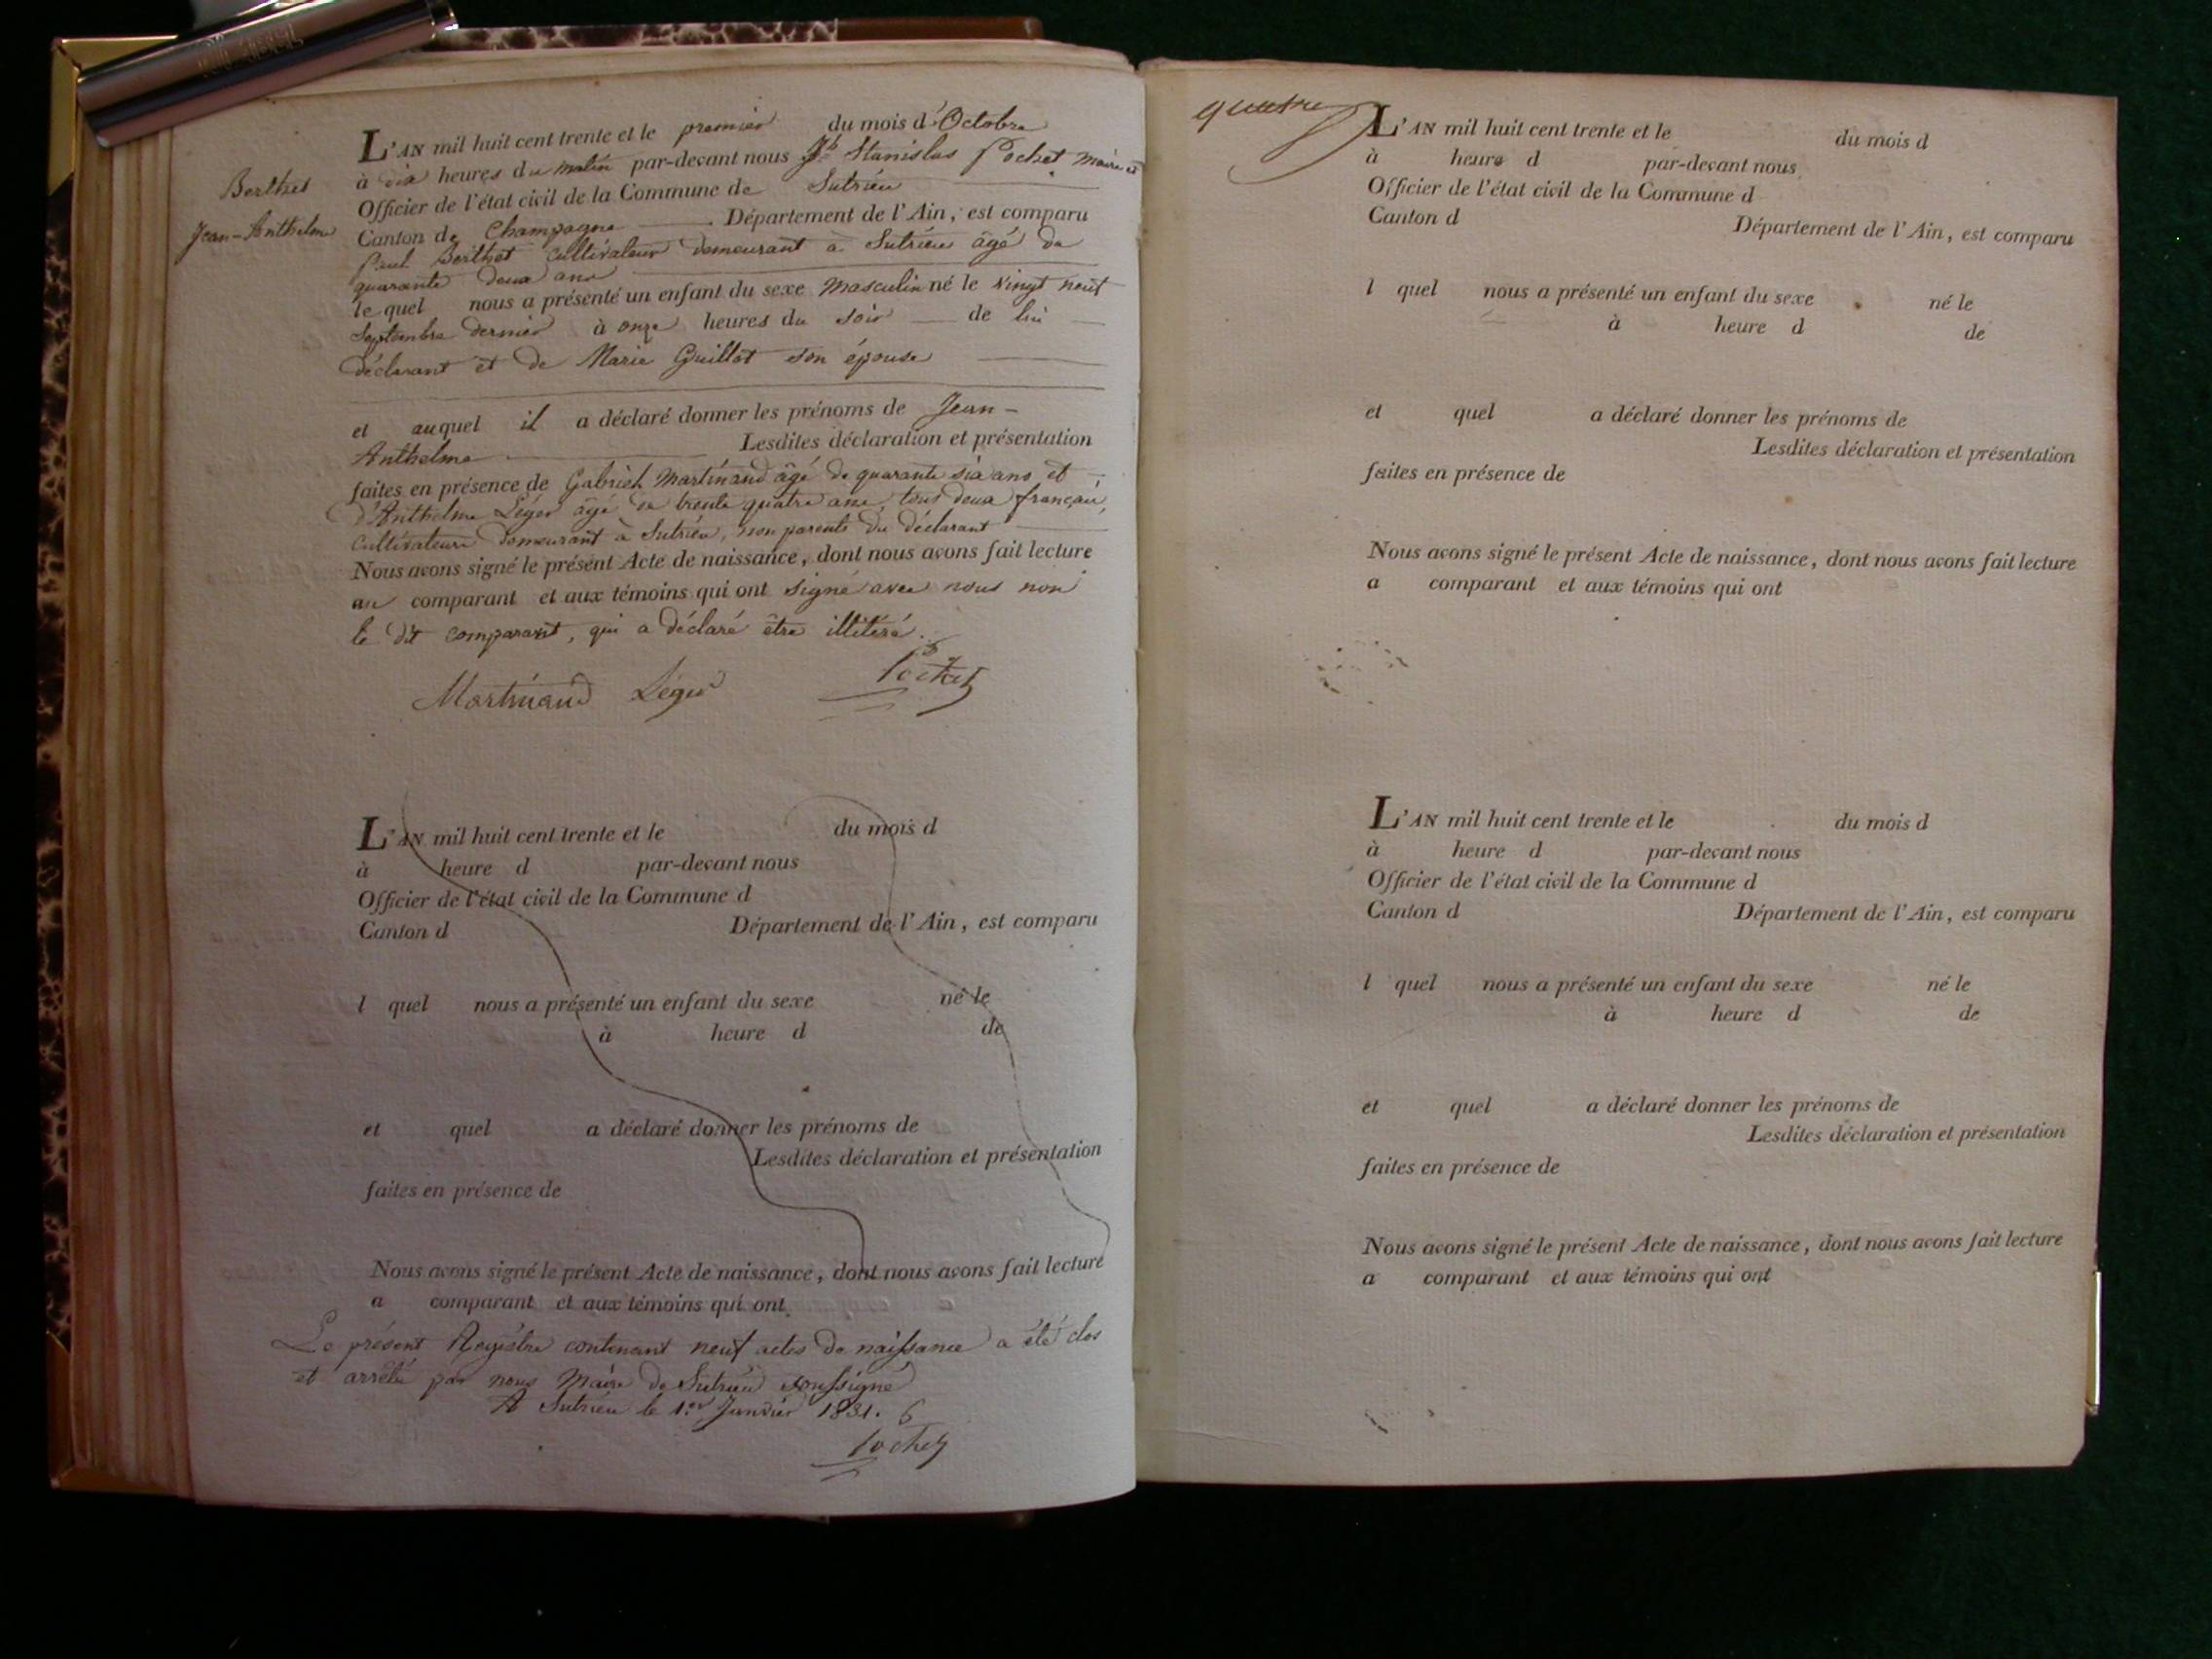 Berthet
Jean-Anthelme
L'AN mil huit cent trente et le premier du mois d'Octobre
à dix heures du matin par-devant nous Jh Stanislas Pochet maire et
Officier de l'état civil de la Commune de Sutrieu
Canton de Champagne Département de l'Ain, est comparu
Paul Berthet cultivateur demeurant à Sutrieu âgé de
quarante deux ans
lequel nous a présenté un enfant du sexe masculin né le vingt neuf
septembre dernier à onze heures du soir de lui
déclarant et de Marie Guillot son épouse
et auquel il a déclaré donner les prénoms de Jean-
Anthelme Lesdites déclaration et présentation
faites en présence de Gabriel Martinand âgé de quarante six ans et
d'Anthelme Léger âgé de trente quatre ans, tous deux français,
cultivateurs demeurant à Sutrieu, non parents du déclarant
Nous avons signé le présent Acte de naissance, dont nous avons fait lecture
au comparant et aux témoins qui ont signé avec nous non
le dit comparant, qui a déclaré être illitéré.
Martinand Léger Pochet
L'AN mil huit cent trente et le du mois d
à heure d par-devant nous
Officier de l'état civil de la Commune d
Canton d Département de l'Ain, est comparu
l quel nous a présenté un enfant du sexe né le
à heure d de
et quel a déclaré donner les prénoms de
Lesdites déclaration et présentation
faites en présence de
Nous avons signé le présent Acte de naissance, dont nous avons fait lecture
a comparant et aux témoins qui ont
Le présent Registre contenant neuf actes de naissance a été clos
et arrêté par nous Maire de Sutrieu soussigné
A Sutrieu le 1er Janvier 1831.
Pochet
quatre
L'AN mil huit cent trente et le du mois d
à heure d par-devant nous
Officier de l'état civil de la Commune d
Canton d Département de l'Ain, est comparu
l quel nous a présenté un enfant du sexe né le
à heure d de
et quel a déclaré donner les prénoms de
Lesdites déclaration et présentation
faites en présence de
Nous avons signé le présent Acte de naissance, dont nous avons fait lecture
a comparant et aux témoins qui ont
L'AN mil huit cent trente et le du mois d
à heure d par-devant nous
Officier de l'état civil de la Commune d
Canton d Département de l'Ain, est comparu
l quel nous a présenté un enfant du sexe né le
à heure d de
et quel a déclaré donner les prénoms de
Lesdites déclaration et présentation
faites en présence de
Nous avons signé le présent Acte de naissance, dont nous avons fait lecture
a comparant et aux témoins qui ont